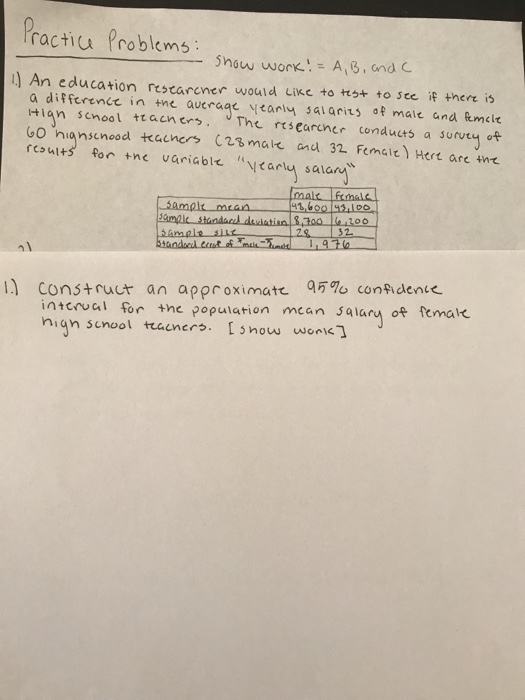 Practice Problems:
Show work! = A, B, and C
1.) An education researcher would like to test to see if there is
a difference in the average yearly salaries of male and female
High school teachers. The researcher conducts a survey of
60 highschood teachers (28 male and 32 Female) Here are the
results for the variable "yearly salary"
male Female
sample mean 48,600
sample standard deviation 8,700 6,200
sample size 28 32
Standard error of 1,976
1.) Construct an approximate 95% confidence
interval for the population mean salary of female
high school teachers. [show work]